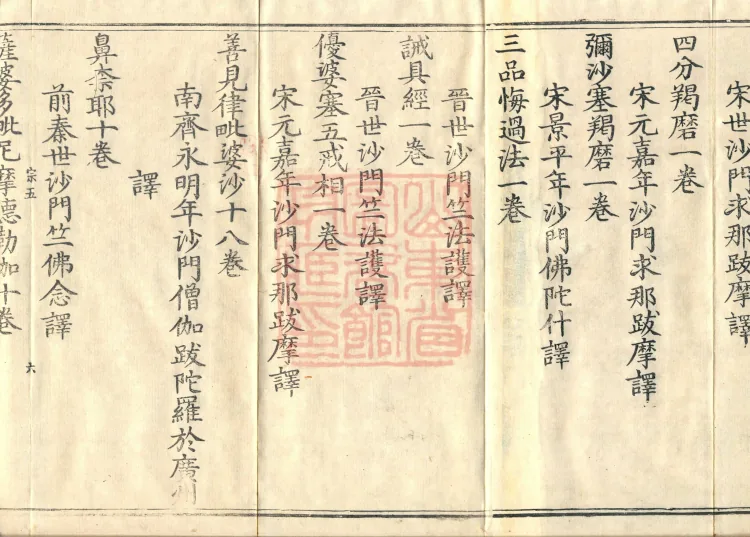 宋世沙門求那跋摩譯
四分羯磨一卷
宋元嘉年沙門求那跋摩譯
彌沙塞羯磨一卷
宋景平年沙門佛陀什譯
三品悔過法一卷
晉世沙門竺法護譯
誡具經一卷
晉世沙門竺法護譯
優婆塞五戒相一卷
宋元嘉年沙門求那跋摩譯
善見律毗婆沙十八卷
南齊永明年沙門僧伽跋陀羅於廣州
譯
鼻奈耶十卷
前秦世沙門竺佛念譯
宗五
六
薩婆多毗尼摩德勒加十卷
山東省
圖書館